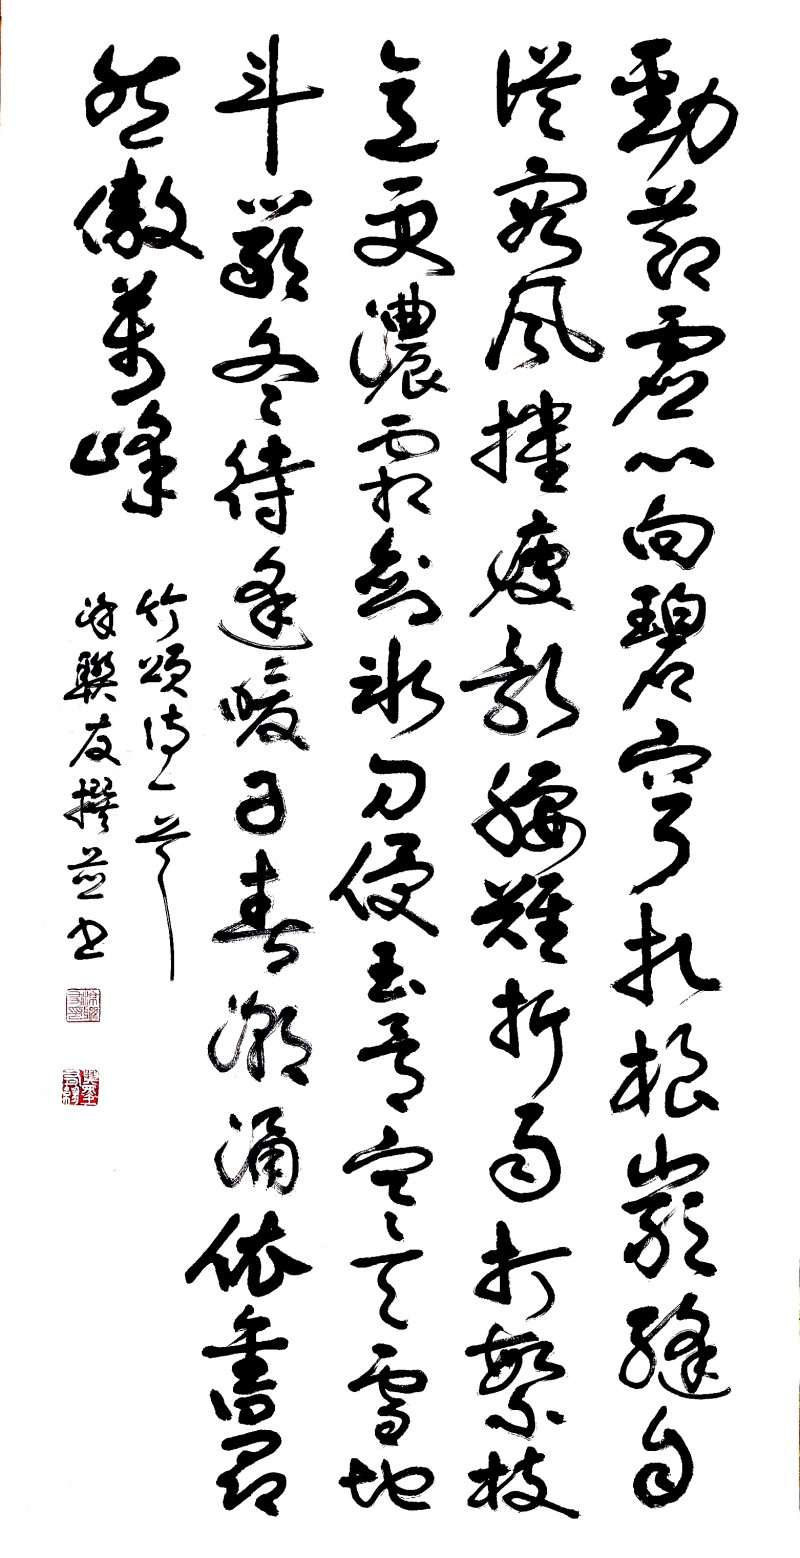 勁節虛心向碧穹扎根巖縫自
從容風摧瘦影腰難折雨打繁枝
意更濃霜劍冰刀侵玉骨寒天雪地
斗嚴冬待逢暖日春潮涌依舊昂
然傲萬峰
竹頌詩一首
徐聯友撰並書